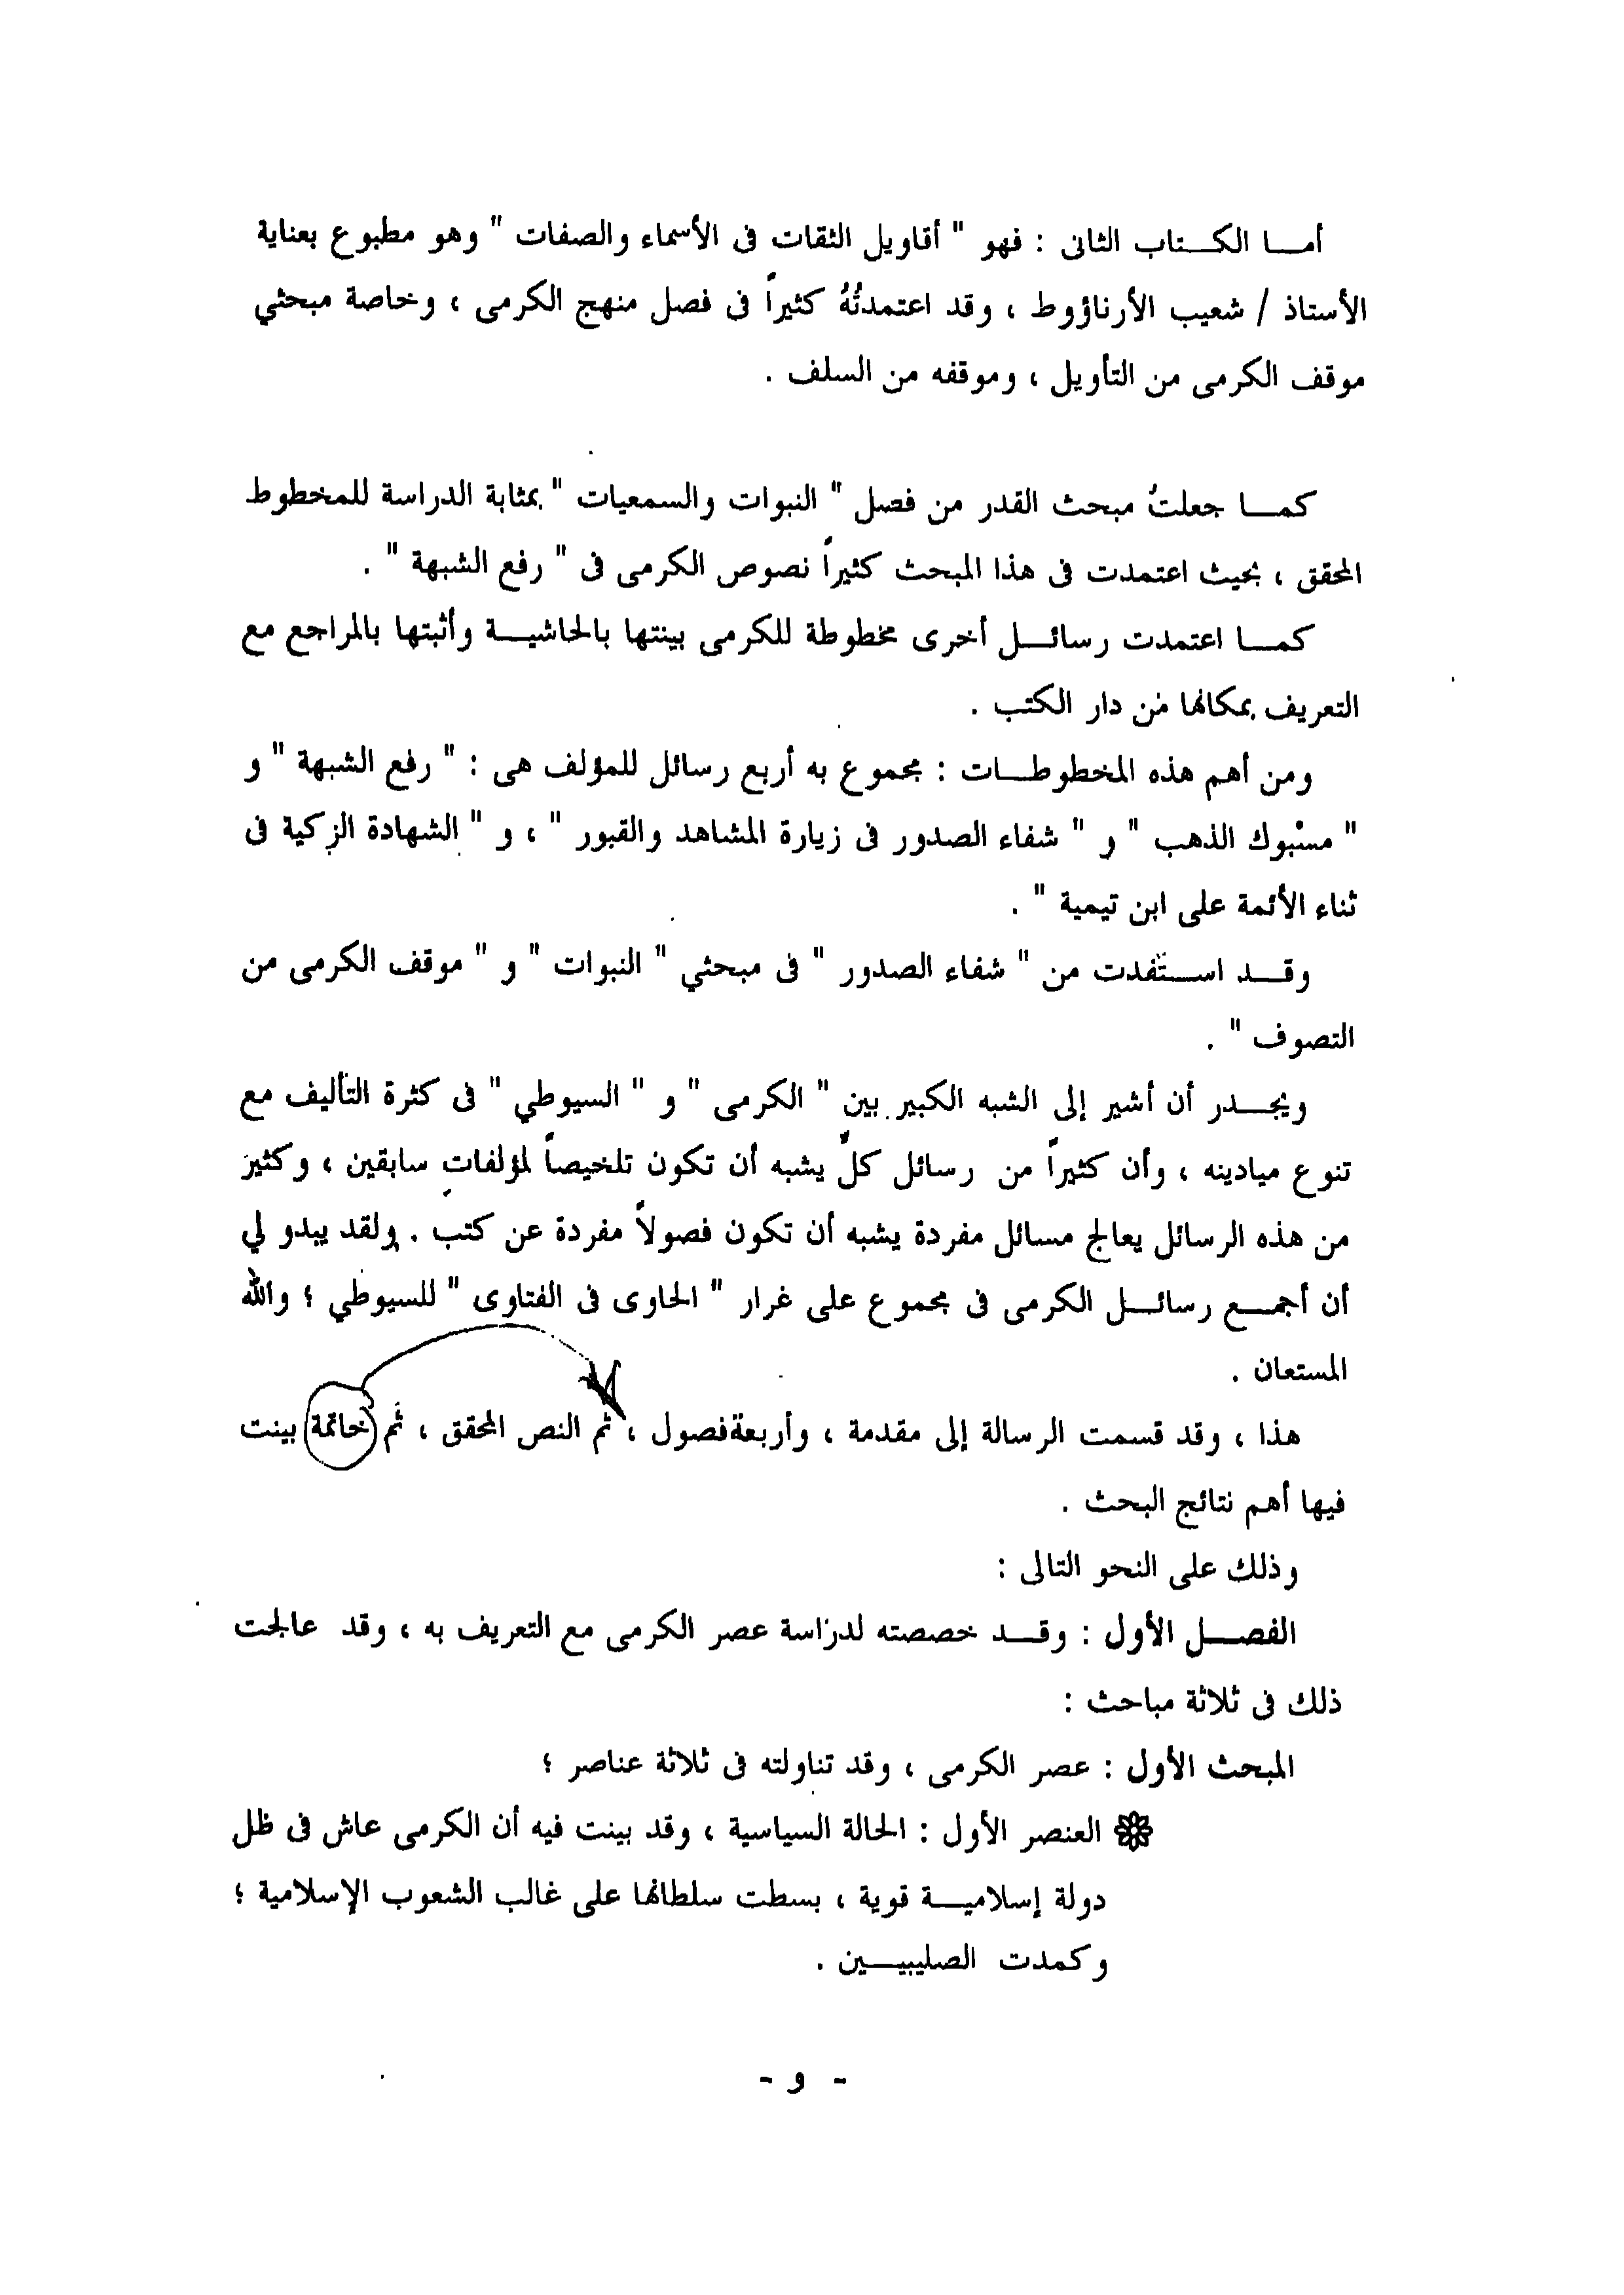 أما الكتاب الثانى : فهو " أقاويل الثقات فى الأسماء والصفات " وهو مطبوع بعناية
الأستاذ / شعيب الأرناؤوط ، وقد اعتمدتُهُ كثيراً فى فصل منهج الكرمى ، وخاصة مبحثي
موقف الكرمى من التأويل ، وموقفه من السلف .
كما جعلتُ مبحث القدر من فصل " النبوات والسمعيات " بمثابة الدراسة للمخطوط
المحقق ، بحيث اعتمدت فى هذا المبحث كثيراً نصوص الكرمى فى " رفع الشبهة " .
كما اعتمدت رسائل أخرى مخطوطة للكرمى بينتها بالحاشية وأثبتها بالمراجع مع
التعريف بمكانها من دار الكتب .
ومن أهم هذه المخطوطات : مجموع به أربع رسائل للمؤلف هى : " رفع الشبهة " و
" مسبوك الذهب " و " شفاء الصدور فى زيارة المشاهد والقبور " ، و " الشهادة الزكية فى
ثناء الأئمة على ابن تيمية " .
وقد استفدت من " شفاء الصدور " فى مبحثي " النبوات " و " موقف الكرمى من
التصوف " .
ويجدر أن أشير إلى الشبه الكبير بين " الكرمى " و " السيوطي " فى كثرة التأليف مع
تنوع ميادينه ، وأن كثيراً من رسائل كلٍّ يشبه أن تكون تلخيصاً لمؤلفاتٍ سابقين ، وكثير
من هذه الرسائل يعالج مسائل مفردة يشبه أن تكون فصولاً مفردة عن كتب . ولقد يبدو لي
أن أجمع رسائل الكرمى فى مجموع على غرار " الحاوى فى الفتاوى " للسيوطي ؛ والله
المستعان .
هذا ، وقد قسمت الرسالة إلى مقدمة ، وأربعةفصول ، ثم النص المحقق ، ثم خاتمة بينت
فيها أهم نتائج البحث .
وذلك على النحو التالى :
الفصل الأول : وقد خصصته لدراسة عصر الكرمى مع التعريف به ، وقد عالجت
ذلك فى ثلاثة مباحث :
المبحث الأول : عصر الكرمى ، وقد تناولته فى ثلاثة عناصر ؛
العنصر الأول : الحالة السياسية ، وقد بينت فيه أن الكرمى عاش فى ظل
دولة إسلامية قوية ، بسطت سلطانها على غالب الشعوب الإسلامية ؛
وكمدت الصليبيين .
- و -